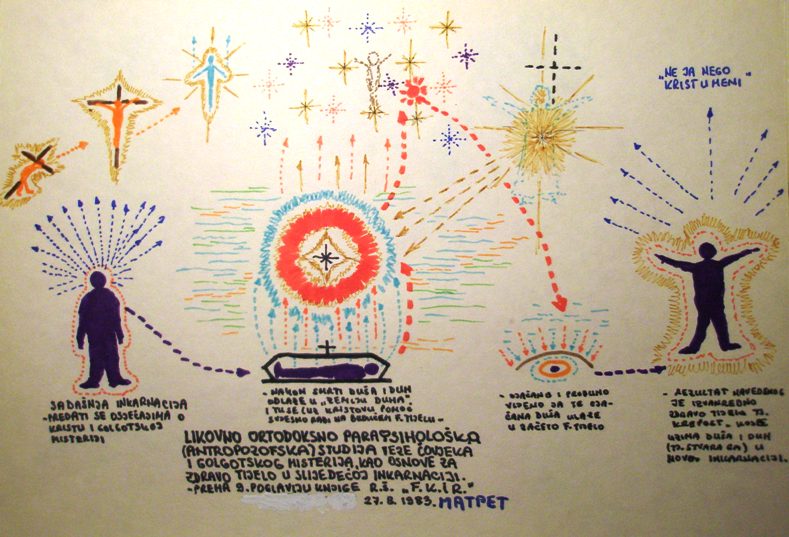 „NE JA NEGO
KRIST U MENI"
SADAŠNJA INKARNACIJA
-PREDATI SE OSJEĆAJIMA O
KRISTU I GOLGOTSKOJ
MISTERIJI
-NAKON SMRTI DUŠA I DUH
ODLAZE U „ZEMLJU DUHA"
I TU SE (UZ KRISTOVU POMOĆ
SVJESNO RADI NA BUDUĆEM F. TIJELU-
-OJAČANO I
JA TE OJA-
ČANA DUŠA ULAZE
U ZAČETO F. TIJELO
-REZULTAT NAVEDENOG
JE IZVANREDNO
ZDRAVO TIJELO TJ.
KREPOST- KOJE
UZIMA DUŠA I DUH
(TJ. STVARA GA) U
NOVOJ INKARNACIJI.
LIKOVNO ORTODOKSNO PARAPSIHOLOŠKA
(ANTROPOZOFSKA) STUDIJA VEZE ČOVJEKA
I GOLGOTSKOG MISTERIJA, KAO OSNOVE ZA
ZDRAVO TIJELO U SLIJEDEĆOJ INKARNACIJI.
-PREMA 9. POGLAVLJU KNJIGE R.Š. „F.K.I R."
27.8.1983. MATPET